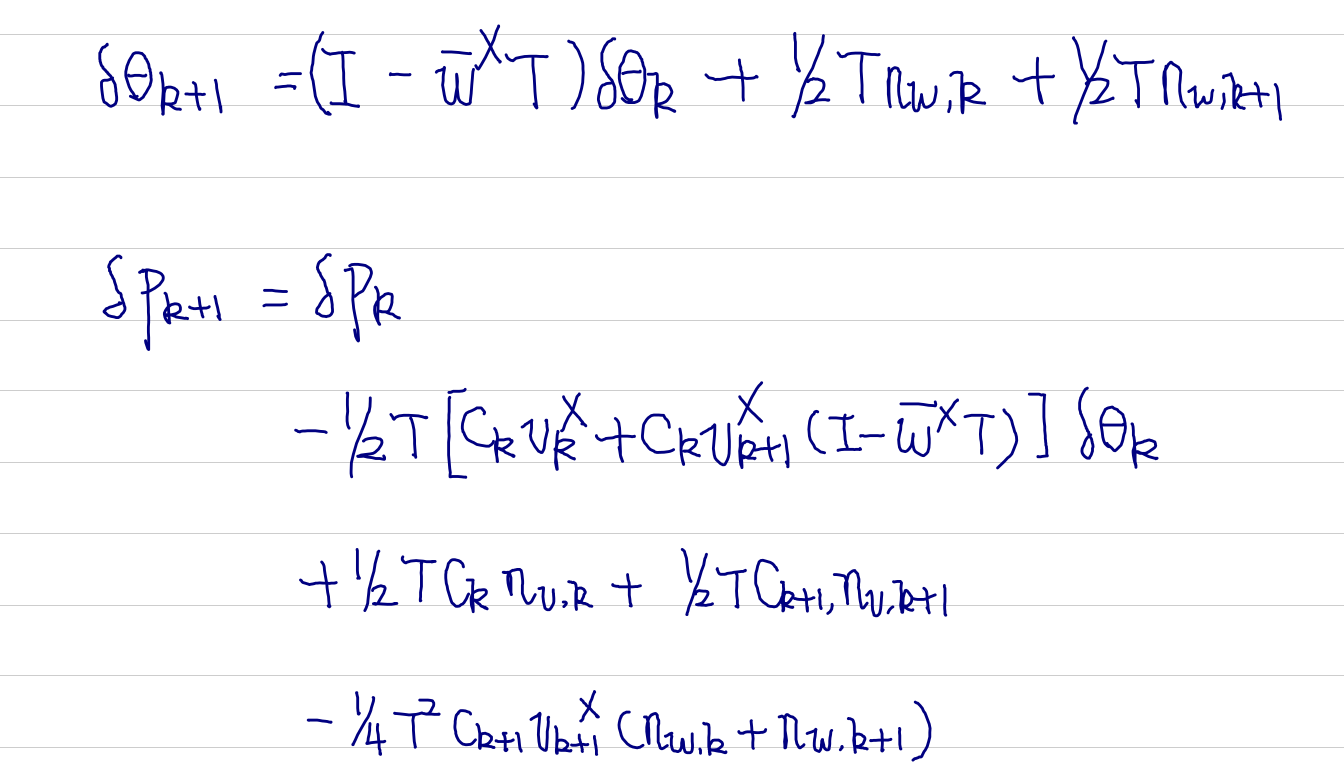 δθ_{k+1} = (I - \bar{w}^× T) δθ_k + ½ T n_{w,k} + ½ T n_{w,k+1}
δp_{k+1} = δp_k
- ½ T [C_k v_k^× + C_k v_{k+1}^× (I - \bar{w}^× T)] δθ_k
+ ½ T C_k n_{v,k} + ½ T C_{k+1}, n_{v,k+1}
- ¼ T² C_{k+1} v_{k+1}^× (n_{w,k} + n_{w,k+1})